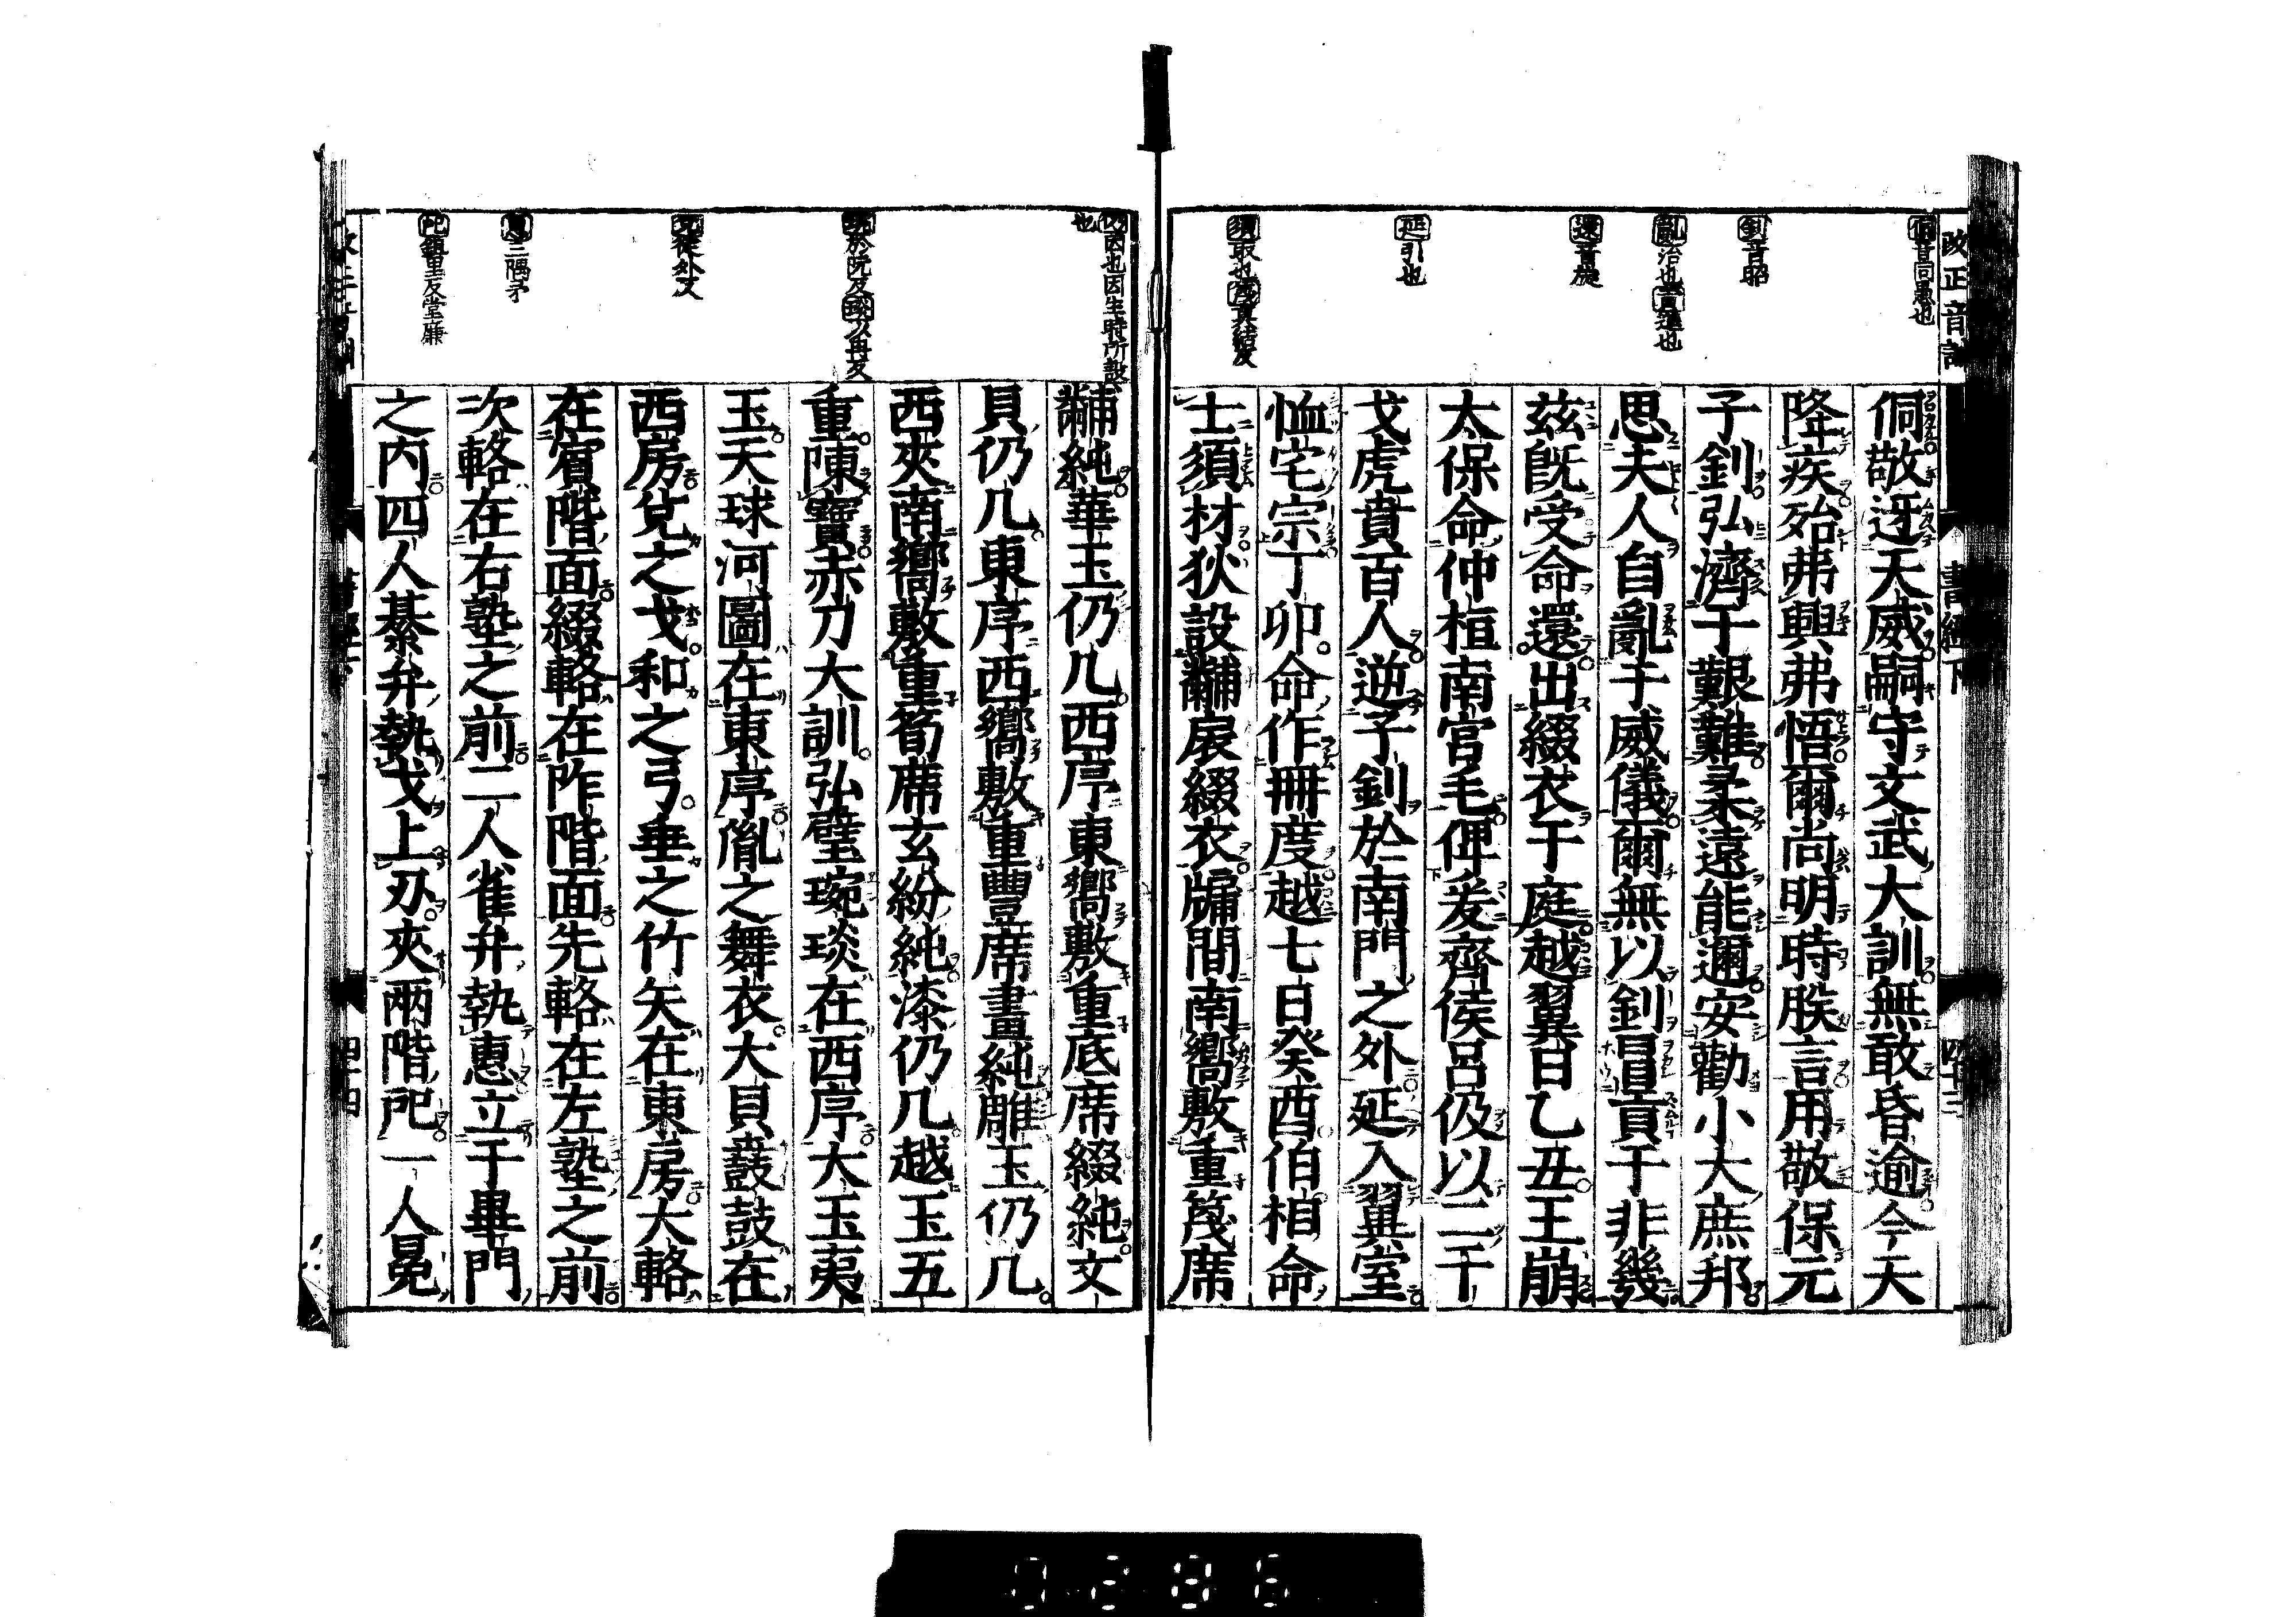 改正音訓
書經下
四十三
侗音同愚也
釗音昭
亂治也貢進也
還音旋
延引也
須取也篾眞結反
侗敬迓天威嗣守文武大訓無敢昏逾今天
降疾殆弗興弗悟爾尚明時朕言用敬保元
子釗弘濟于艱難柔遠能邇安勸小大庶邦
思夫人自亂于威儀爾無以釗冒貢于非幾
茲旣受命還出綴衣于庭越翼日乙丑王崩
太保命仲桓南宮毛俾爰齊侯呂伋以二干
戈虎賁百人逆子釗於南門之外延入翼室
恤宅宗丁卯命作冊度越七日癸酉伯相命
士須材狄設黼扆綴衣牖間南嚮敷重篾席
仍因也因生時所設也
琬於阮反琰以冉反
兌徒外反
惠三隅矛
戺鉏里反堂廉
黼純華玉仍几西序東嚮敷重底席綴純文
貝仍几東序西嚮敷重豐席畫純雕玉仍几
西夾南嚮敷重筍席玄紛純漆仍几越玉五
重陳寶赤刀大訓弘璧琬琰在西序大玉夷
玉天球河圖在東序胤之舞衣大貝鼖鼓在
西房兌之戈和之弓垂之竹矢在東房大輅
在賓階面綴輅在阼階面先輅在左塾之前
次輅在右塾之前二人雀弁執惠立于畢門
之內四人綦弁執戈上刃夾兩階戺一人冕
四十四